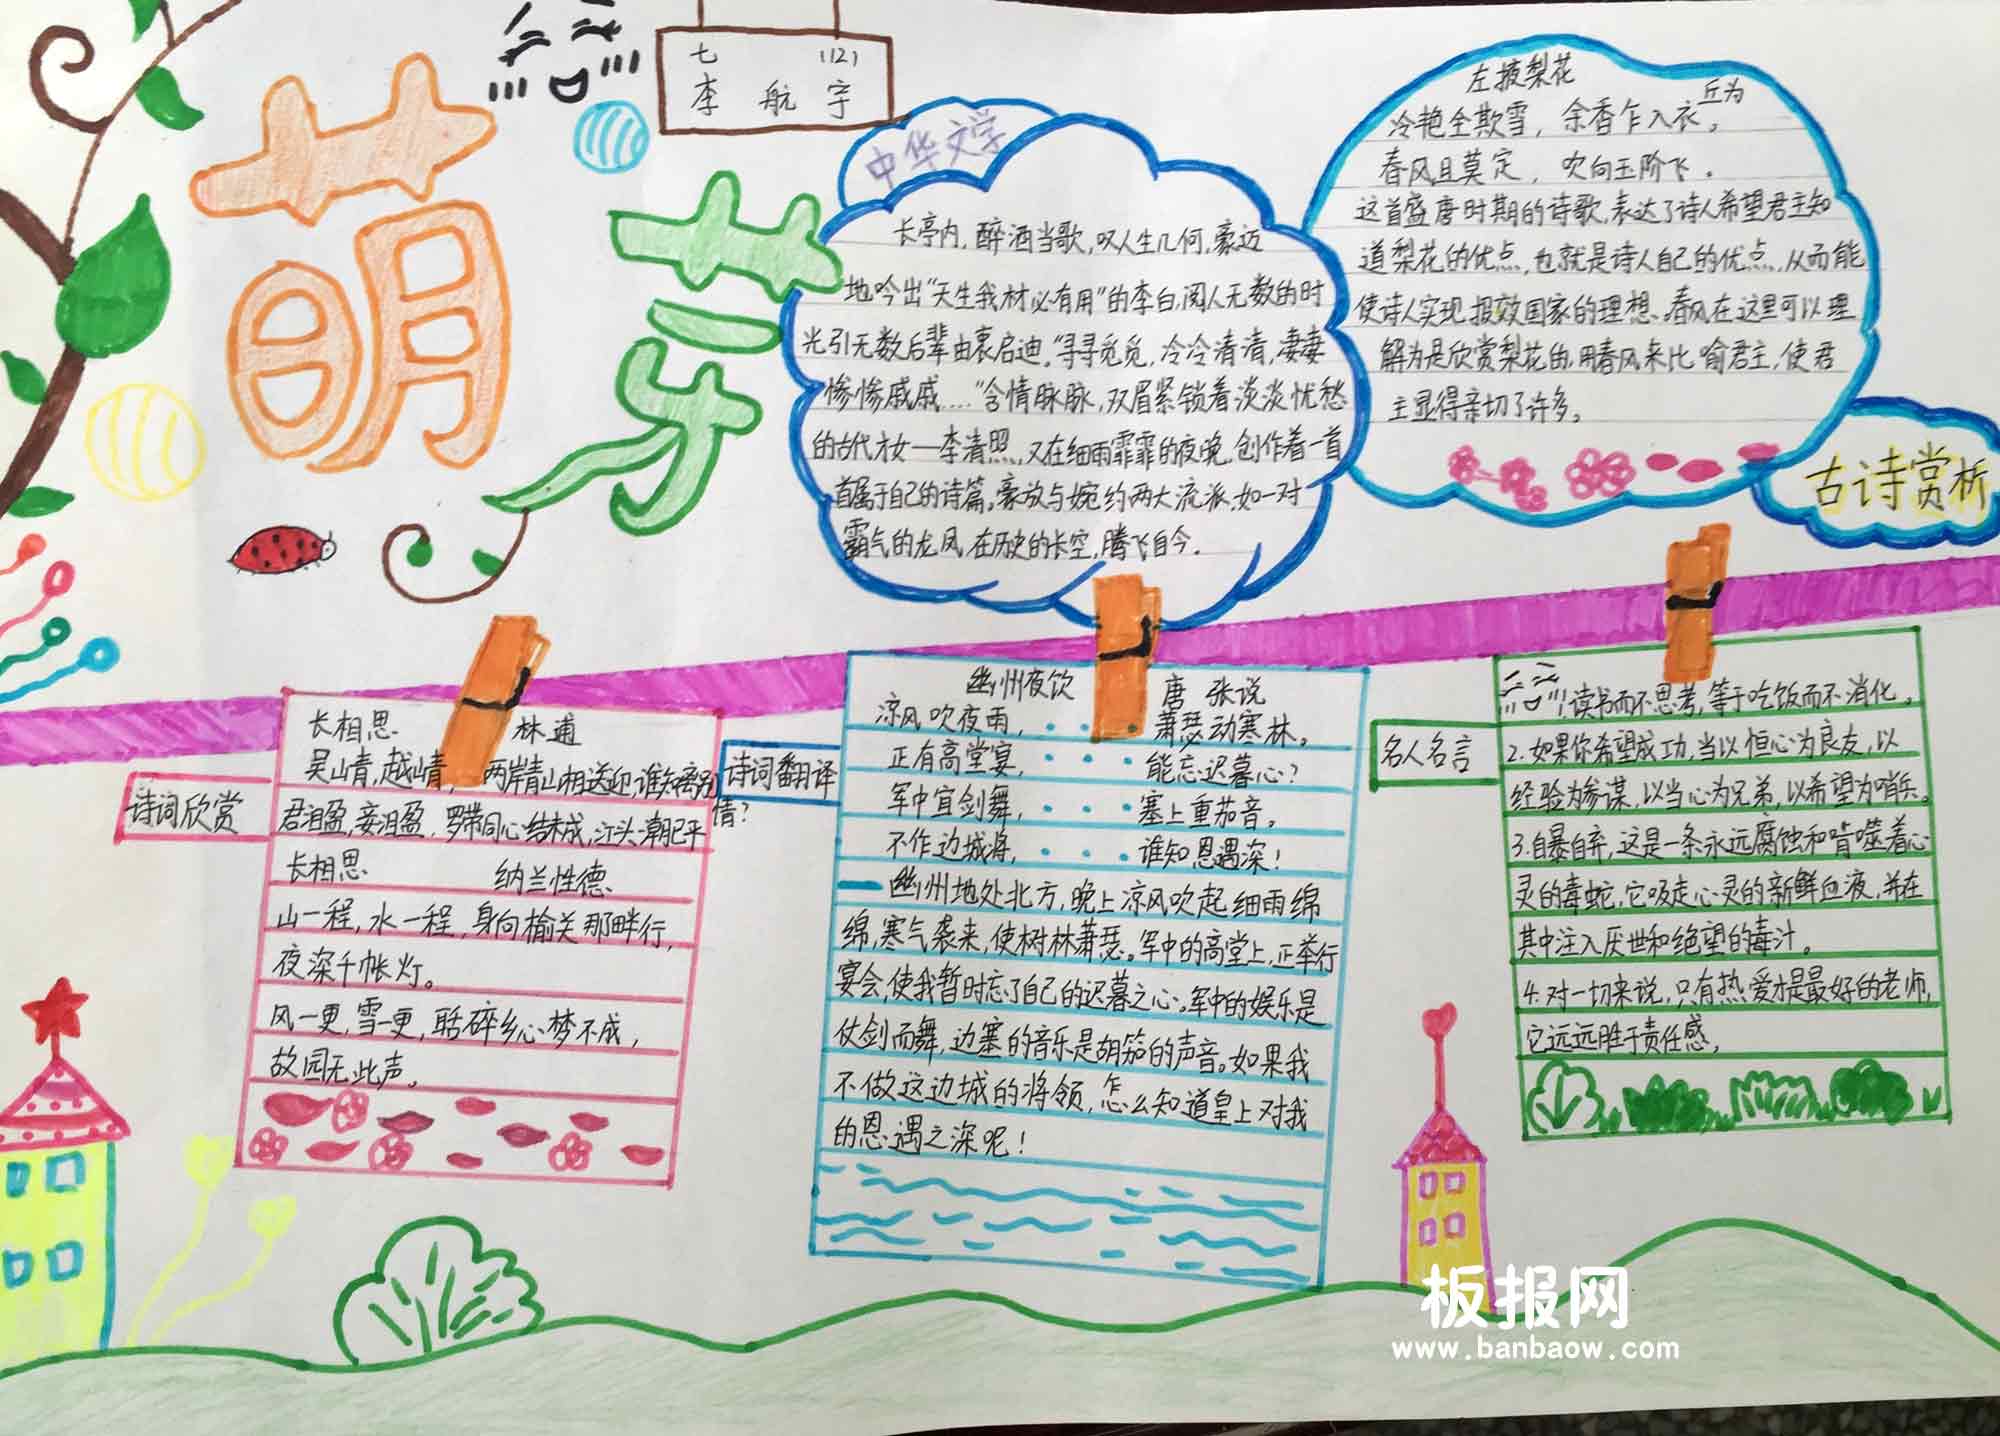 萌芽
七 (12)
李航宇
中华文学
长亭内，醉洒当歌，叹人生几何，豪迈
地吟出“天生我材必有用”的李白，阅人无数的时
光引无数后辈由衷启迪，“寻寻觅觅，冷冷清清，凄凄
惨惨戚戚……”含情脉脉，双眉紧锁着淡淡忧愁
的古代才女—李清照，又在细雨霏霏的夜晚，创作着一首
首属于自己的诗篇，豪放与婉约两大流派，如一对
霸气的龙凤，在历史的长空，腾飞自今。
左掖梨花
丘为
冷艳全欺雪，余香乍入衣。
春风且莫定，吹向玉阶飞。
这首盛唐时期的诗歌，表达了诗人希望君主知
道梨花的优点，也就是诗人自己的优点，从而能
使诗人实现报效国家的理想、春风在这里可以理
解为是欣赏梨花的，用春风来比喻君主，使君
主显得亲切了许多。
古诗赏析
诗词欣赏
长相思 林逋
吴山青，越山青，两岸青山相送迎，谁知离别
情？
君泪盈，妾泪盈，罗带同心结未成，江头潮已平
长相思 纳兰性德
山一程，水一程，身向榆关那畔行，
夜深千帐灯。
风一更，雪一更，聒碎乡心梦不成，
故园无此声。
诗词翻译
幽州夜饮 唐 张说
凉风吹夜雨，····萧瑟动寒林。
正有高堂宴，····能忘迟暮心？
军中宜剑舞，····塞上重茄音。
不作边城将，····谁知恩遇深！
幽州地处北方，晚上凉风吹起细雨绵
绵，寒气袭来，使树林萧瑟。军中的高堂上，正举行
宴会，使我暂时忘了自己的迟暮之心。军中的娱乐是
仗剑而舞，边塞的音乐是胡笳的声音。如果我
不做这边城的将领，怎么知道皇上对我
的恩遇之深呢！
名人名言
1.读书而不思考，等于吃饭而不消化。
2.如果你希望成功，当以恒心为良友，以
经验为参谋，以当心为兄弟，以希望为哨兵。
3.自暴自弃，这是一条永远腐蚀和啃噬着心
灵的毒蛇，它吸走心灵的新鲜血液，并在
其中注入厌世和绝望的毒汁。
4.对一切来说，只有热爱才是最好的老师，
它远远胜于责任感，
板报网
www.banbaow.com